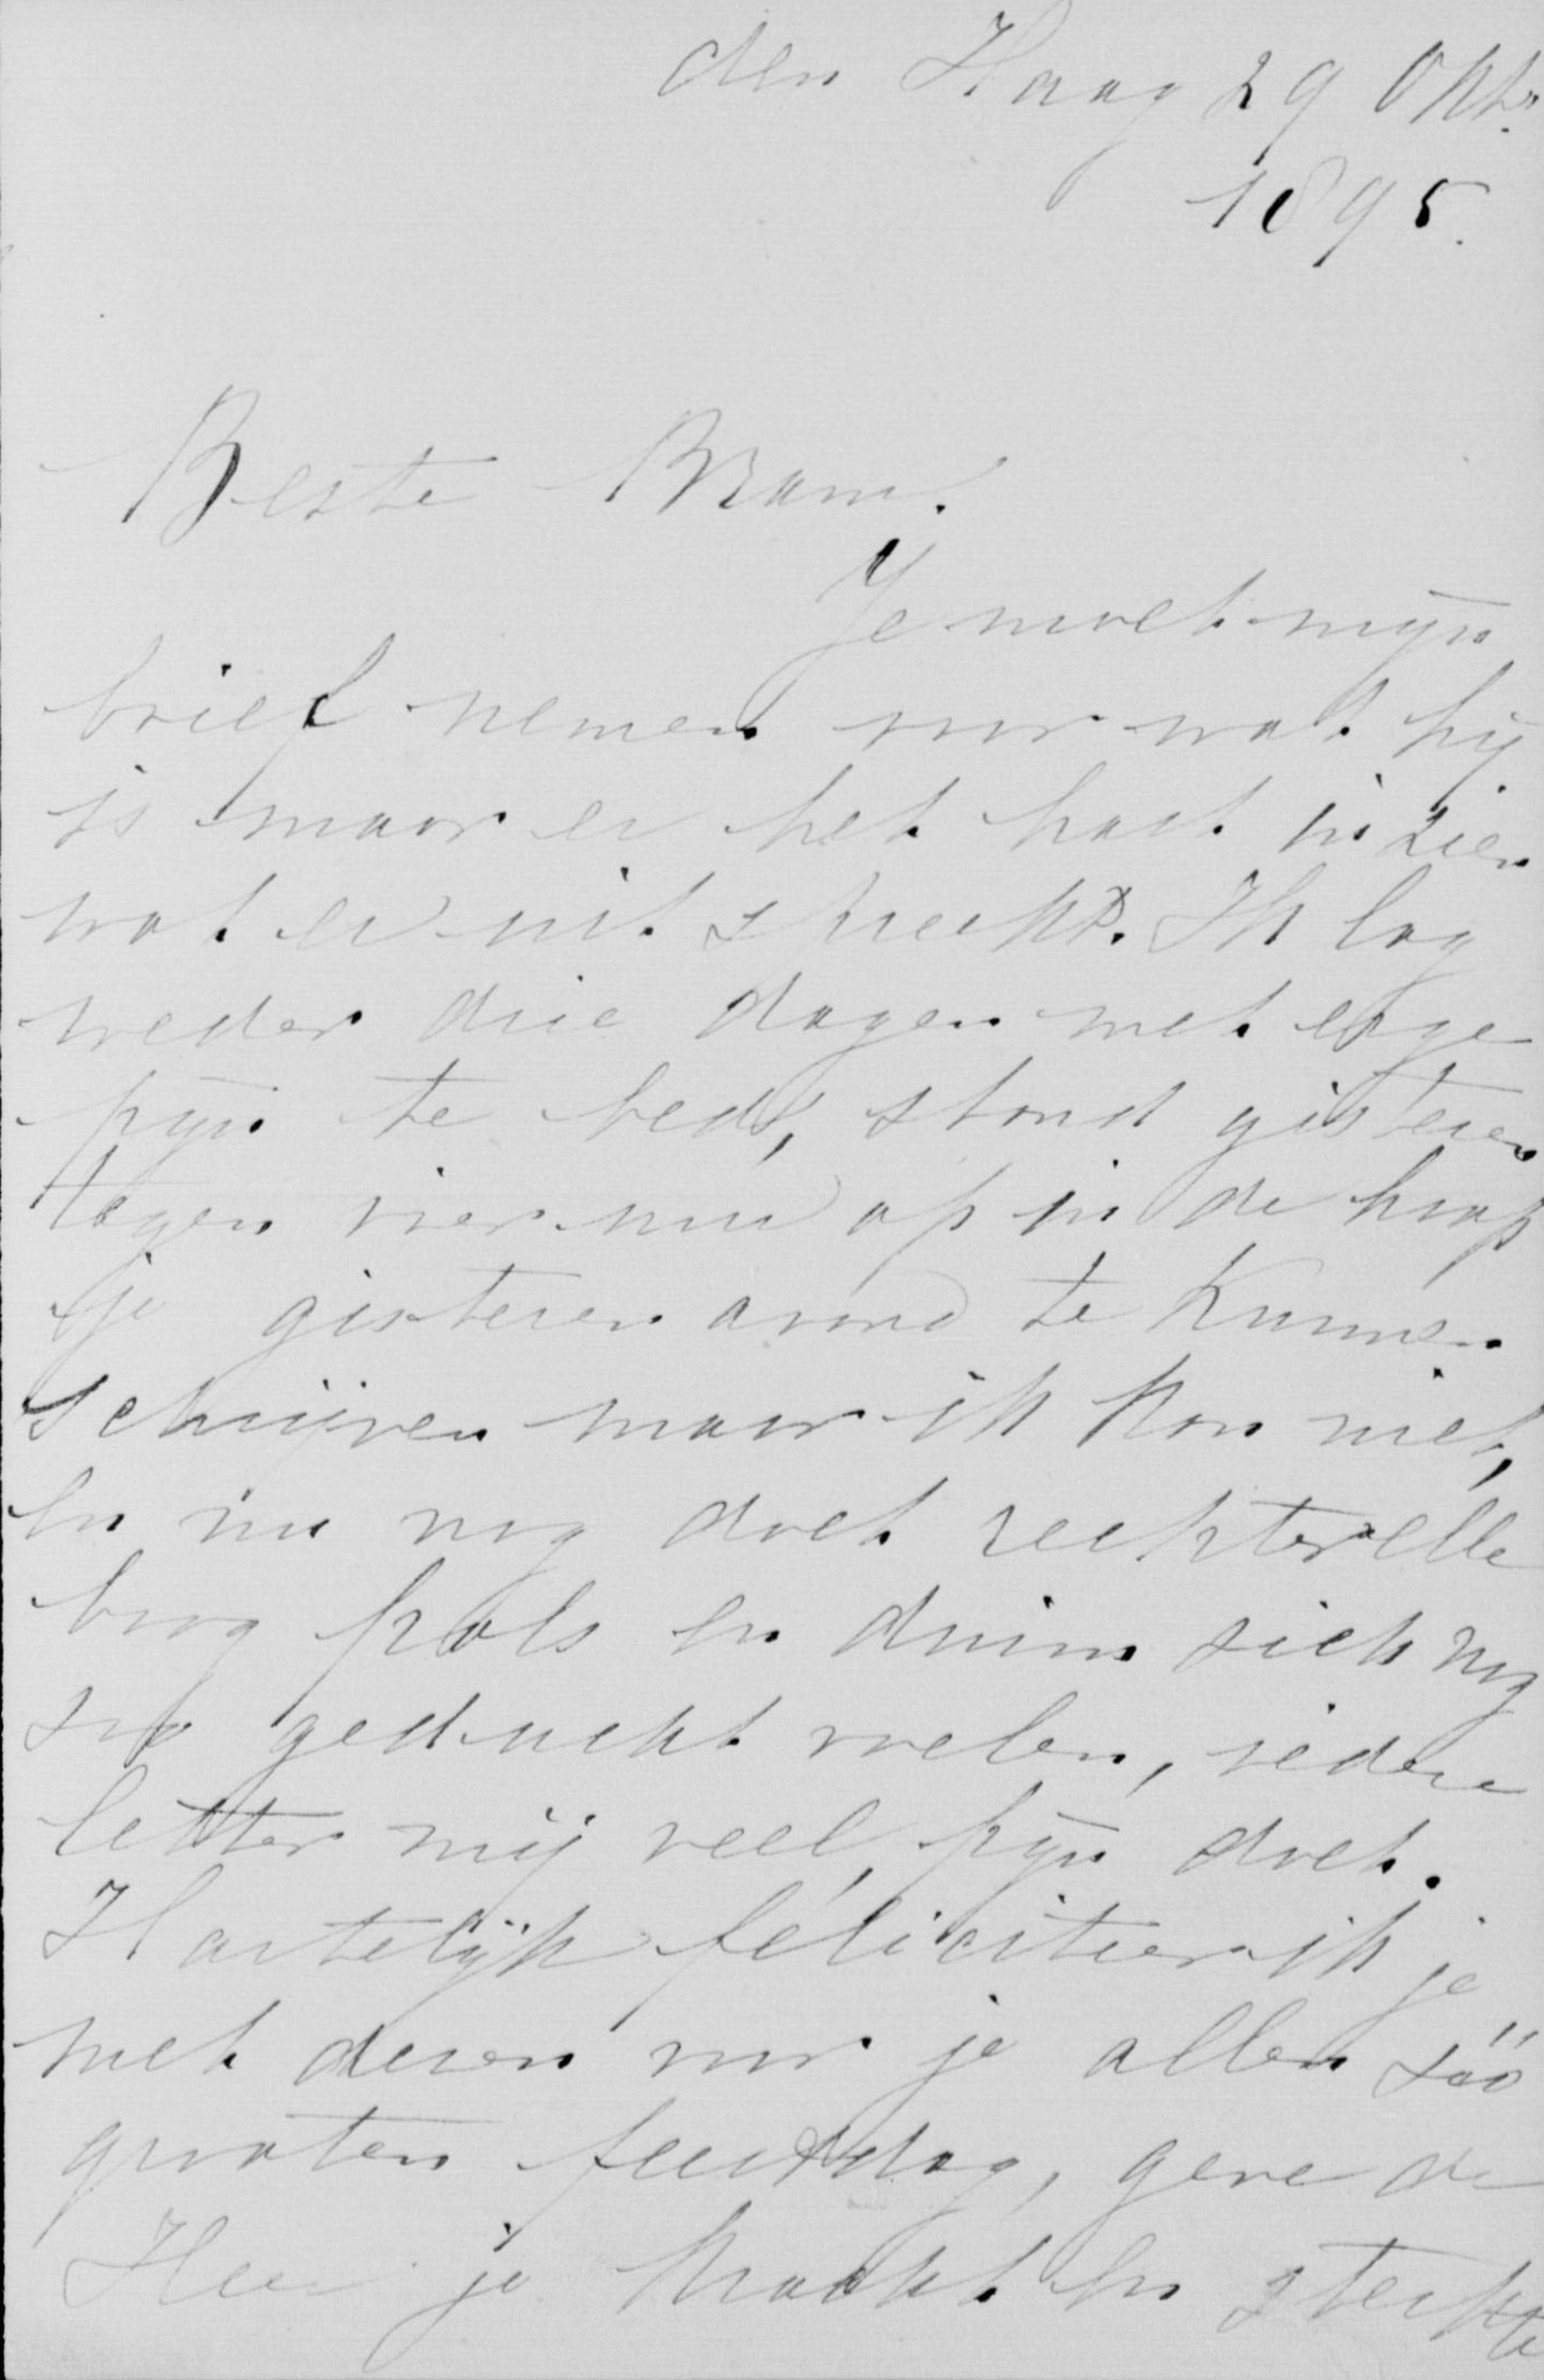 den Haag 29 Okt.
1895.
Beste Bram.
Je moet mijn
brief nemen voor wat hij
is maar er het hart in zien
wat er uit spreekt. Ik lag
weder drie dagen met erge
pijn te bed, stond gisteren
tegen vier uur op in de hoop
je gisteren avond te Kunnen
schrijven maar ik kon niet,
en nu nog doet rechter elle
boog pols en duim zich nog
zoo geducht voelen, iedere
letter mij veel pijn doet.
Hartelijk feliciteer ik je
met dezen voor je allen zóó
grooten feestdag, geve de
Heer je kracht en sterkte